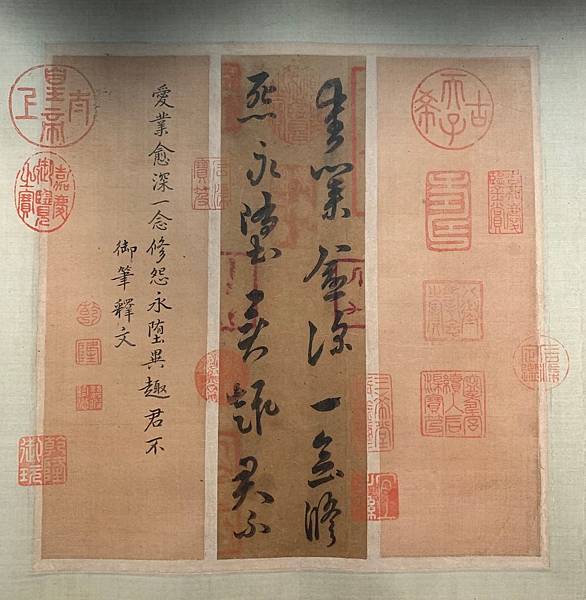 古希天子
嘉慶鑑賞
八徵耄念之寶
石渠定鑑
三希堂精鑑璽
宜子孫
愛業愈深一念修
怨永墮異趣君不
石渠寶笈
愛業愈深一念修怨永墮異趣君不
御筆釋文
乾隆
太上皇帝
嘉慶御覽之寶